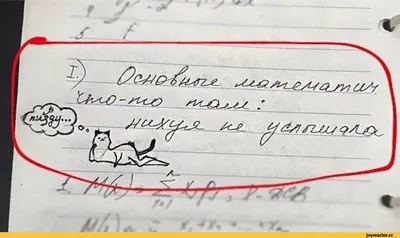 5 f
I) Основные математич.
что-то там:
нихуя не услышала
в
пизду...
1. M(x) =
joyreactor.cc